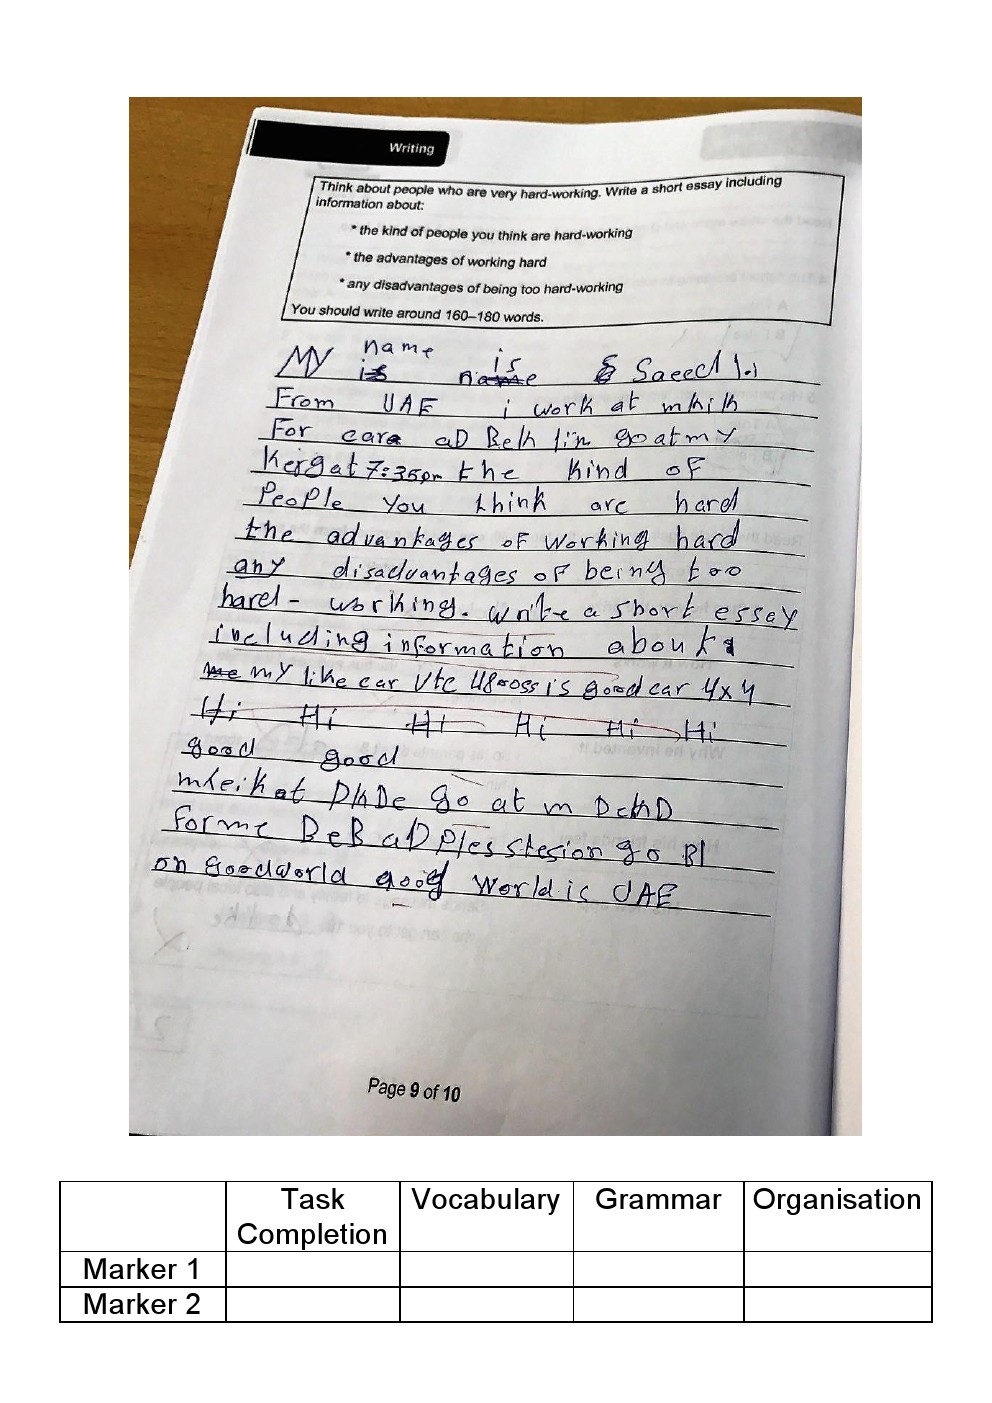 Writing
Think about people who are very hard-working. Write a short essay including
information about:
* the kind of people you think are hard-working
* the advantages of working hard
* any disadvantages of being too hard-working
You should write around 160–180 words.
MY name is Saeed
From UAE i work at
For aD go at my
at 7:35pm the kind oF
PeoPle you think are hard
the advantages oF working hard
any disadvantages oF being too
hard - working. write a short essay
including information about
my like car is good car 4x4
Hi Hi Hi Hi Hi Hi
good good
at go at m
For me BeB aD go
on good world good world is UAE
Page 9 of 10
Task Completion Vocabulary Grammar Organisation
Marker 1
Marker 2